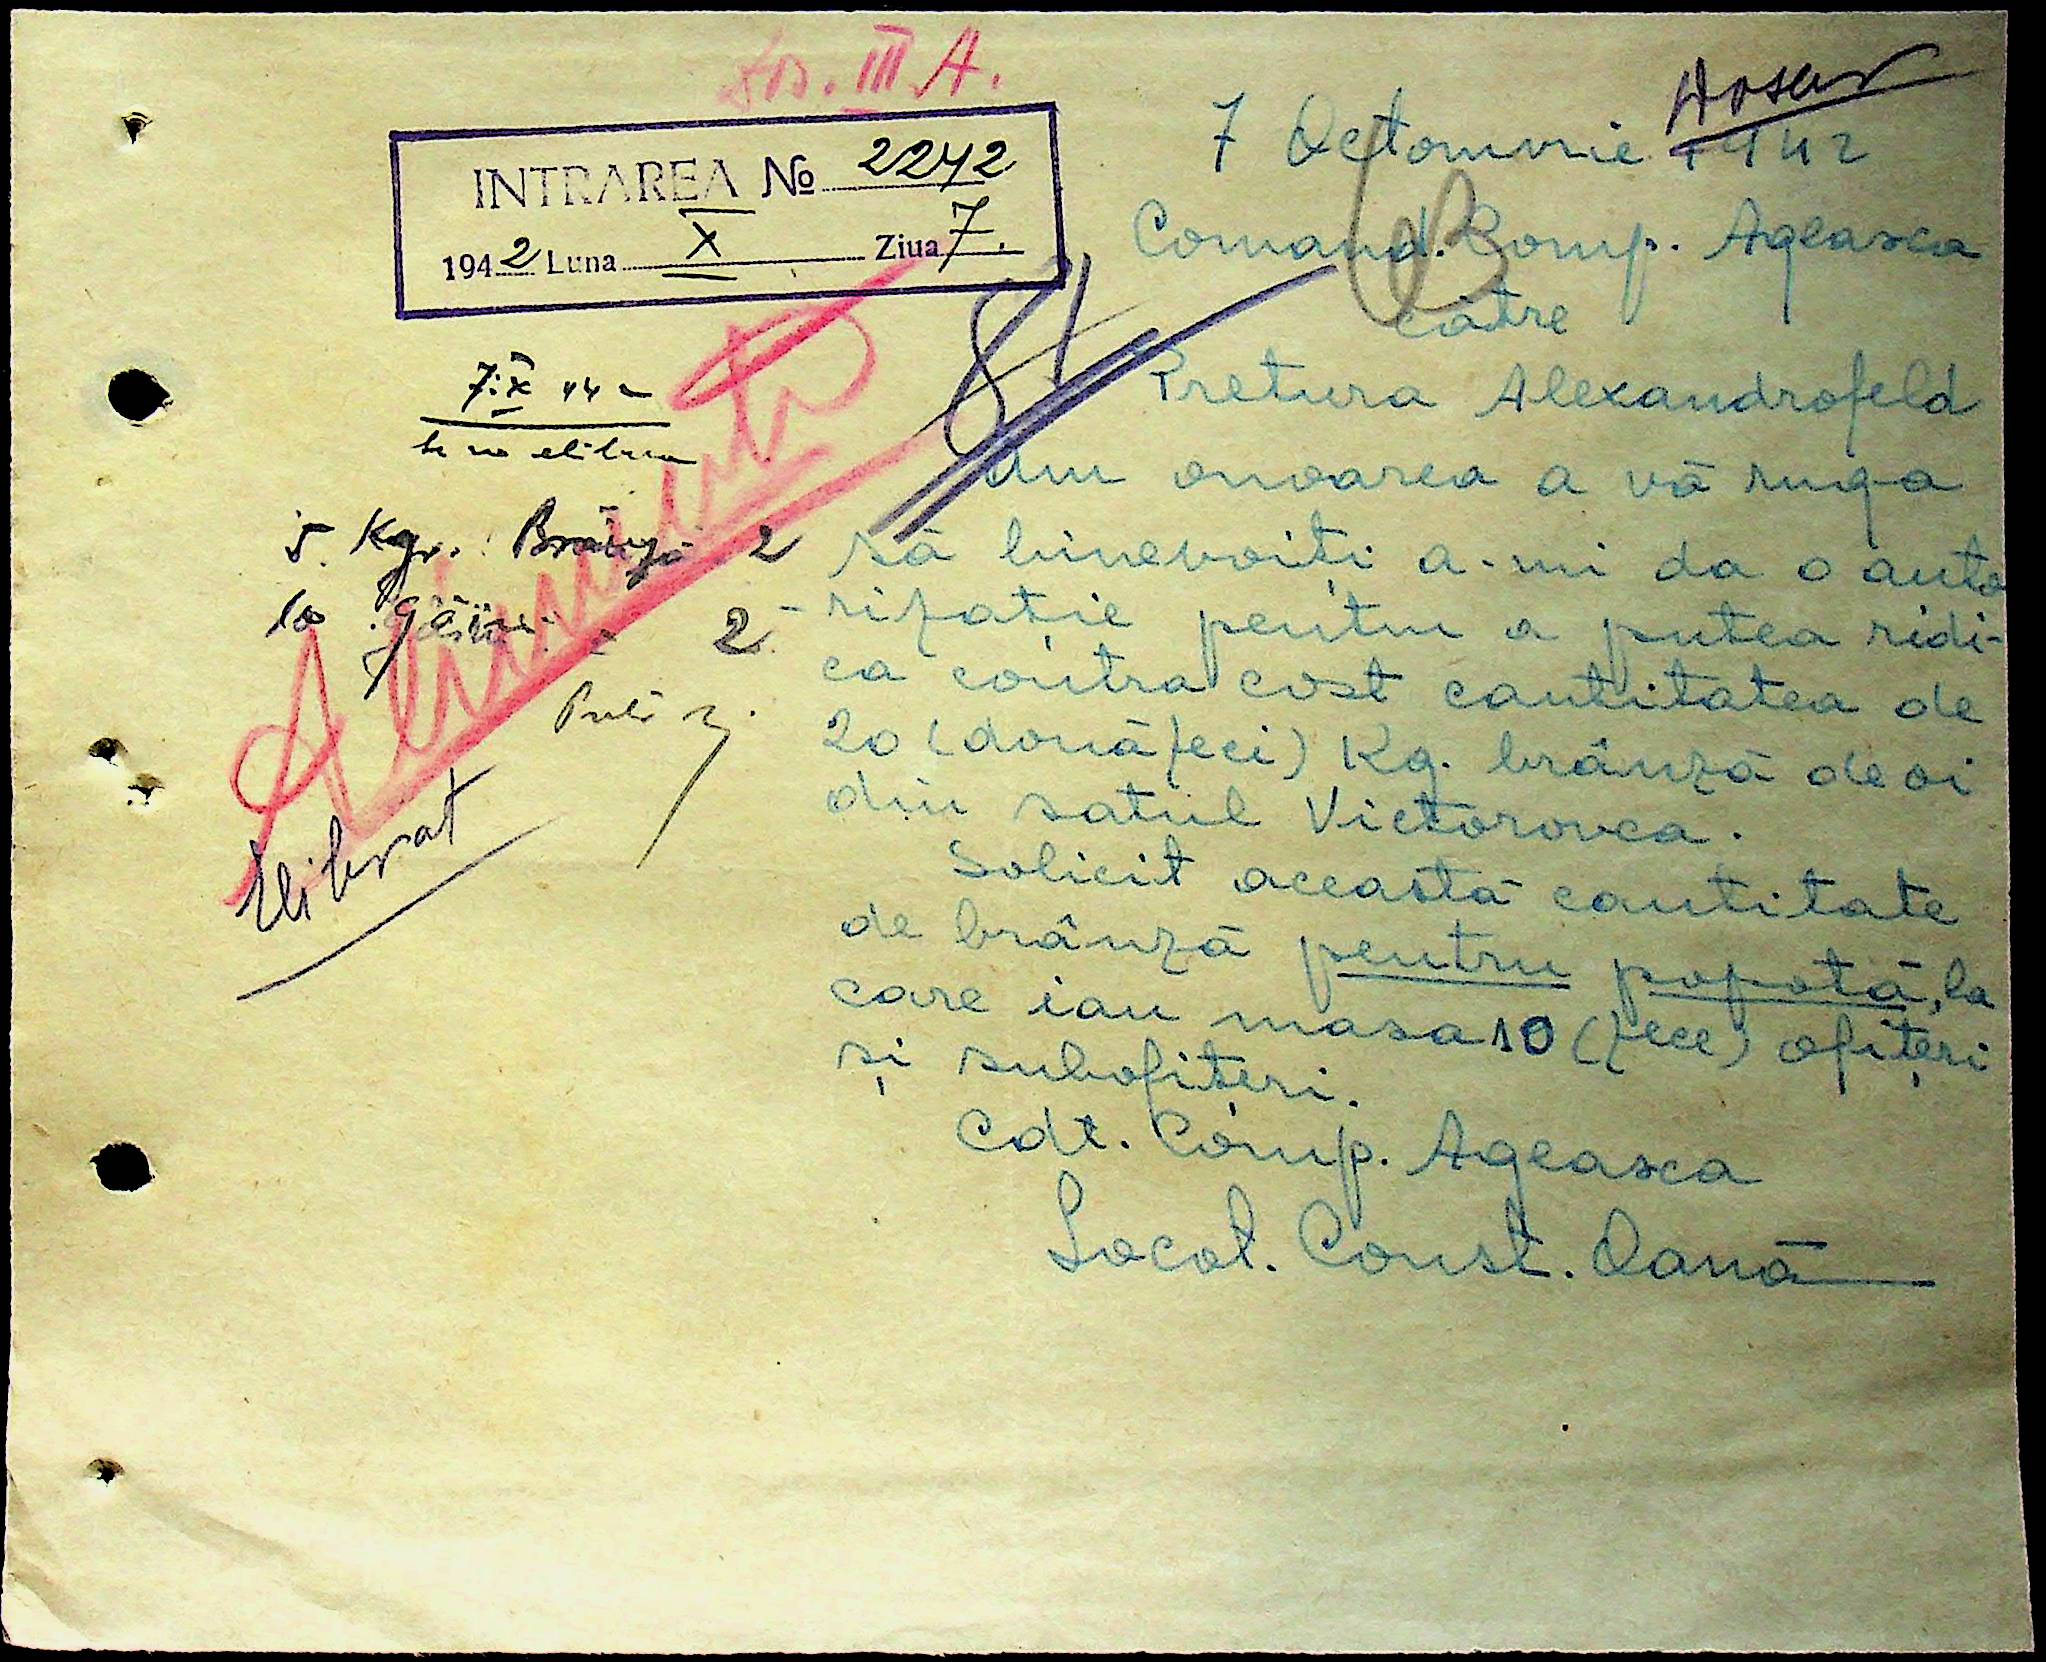 III A.
Dosar
INTRAREA № 2242
1942 Luna X Ziua 7.
7 Octomvrie 1942
Comand. Comp. Ageasca
către
Pretura Alexandrofeld
Am onoarea a vă ruga
să binevoiți a-mi da o auto
rizație pentru a putea ridi-
ca contra cost cantitatea de
20 (douăzeci) Kg. brânză de oi
din satul Victorovca.
Solicit această cantitate
de brânză pentru popotă, la
care iau masa 10 (zece) ofițeri
și subofițeri.
Cdt. Comp. Ageasca
Locot. Const. Oană
81
7.X 942
se va elibera
5 Kgr. Brânză 2
10 găini 2
Alimente
Eliberat